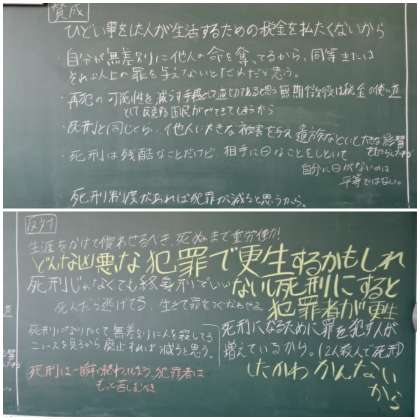 賛成
ひどい事をした人が生活するための税金を払たくないから
・自分が無差別に他人の命を奪ってるから、同等または
それ以上の罪を与えないとだめだと思う。
・再犯の可能性を減らす手段として適切であると思う 無期だと今度は税金の使い道
として反対する国民がでてきてしまうから
・死刑と同じくらい、他人に大きな被害を与え遺族などにも大きな影響
・死刑は残酷なことだけど 相手に同なことをしといて
自分に目がないのは
平等ではない。
死刑制度があれば犯罪が減ると思うから。
反対
生涯をかけて償わせるべき、死ぬまで重労働!!
どんな凶悪な犯罪で更生するかもしれ
死刑じゃなくても終身刑でいい ない死刑にすると
死んだら逃げてる、生きて罪をつぐなわせる 犯罪者が更生
死刑になりたくて無差別に人を殺してる
ニュースを見るから廃止すれば減ると思う。
死刑になるために罪を犯す人が
増えているから。(2人殺人で死刑)
死刑は一瞬で終わってしまう、犯罪者は
もっと苦しむべき
したかわかんない
から